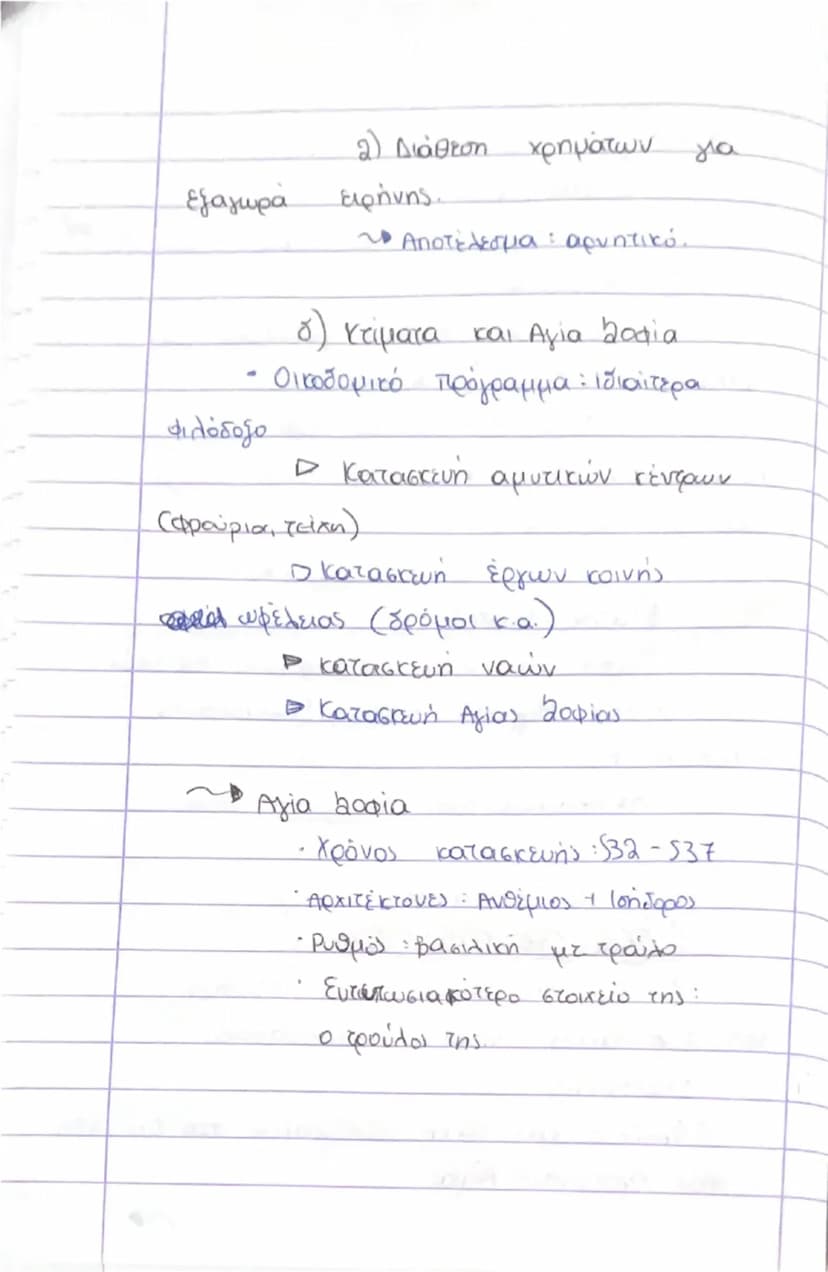 2) Διάθεση χρημάτων για
εξαγωρά ειρήνης.
↝ Αποτέλεσμα : αρνητικό.
δ) Κτίματα και Αγία Σοφία
- Οικοδομικό πρόγραμμα : ιδιαίτερα
φιλόδοξο
▷ Κατασκευή αμυτικών κέντρων
(φρούρια, τείχη)
▷ κατασκευή έργων κοινής
ωφέλειας (δρόμοι κ.α.)
▶ κατασκευή ναών
▷ Κατασκευή Αγίας Σοφίας
↝ Αγία Σοφία
· Χρόνος κατασκευής : 532 - 537
· Αρχιτέκτονες : Ανθέμιος + Ισήδορος
· Ρυθμός : βασιλική με τρούλο
· Εντυπωσιακότερο στοιχείο της :
ο τρούλος της